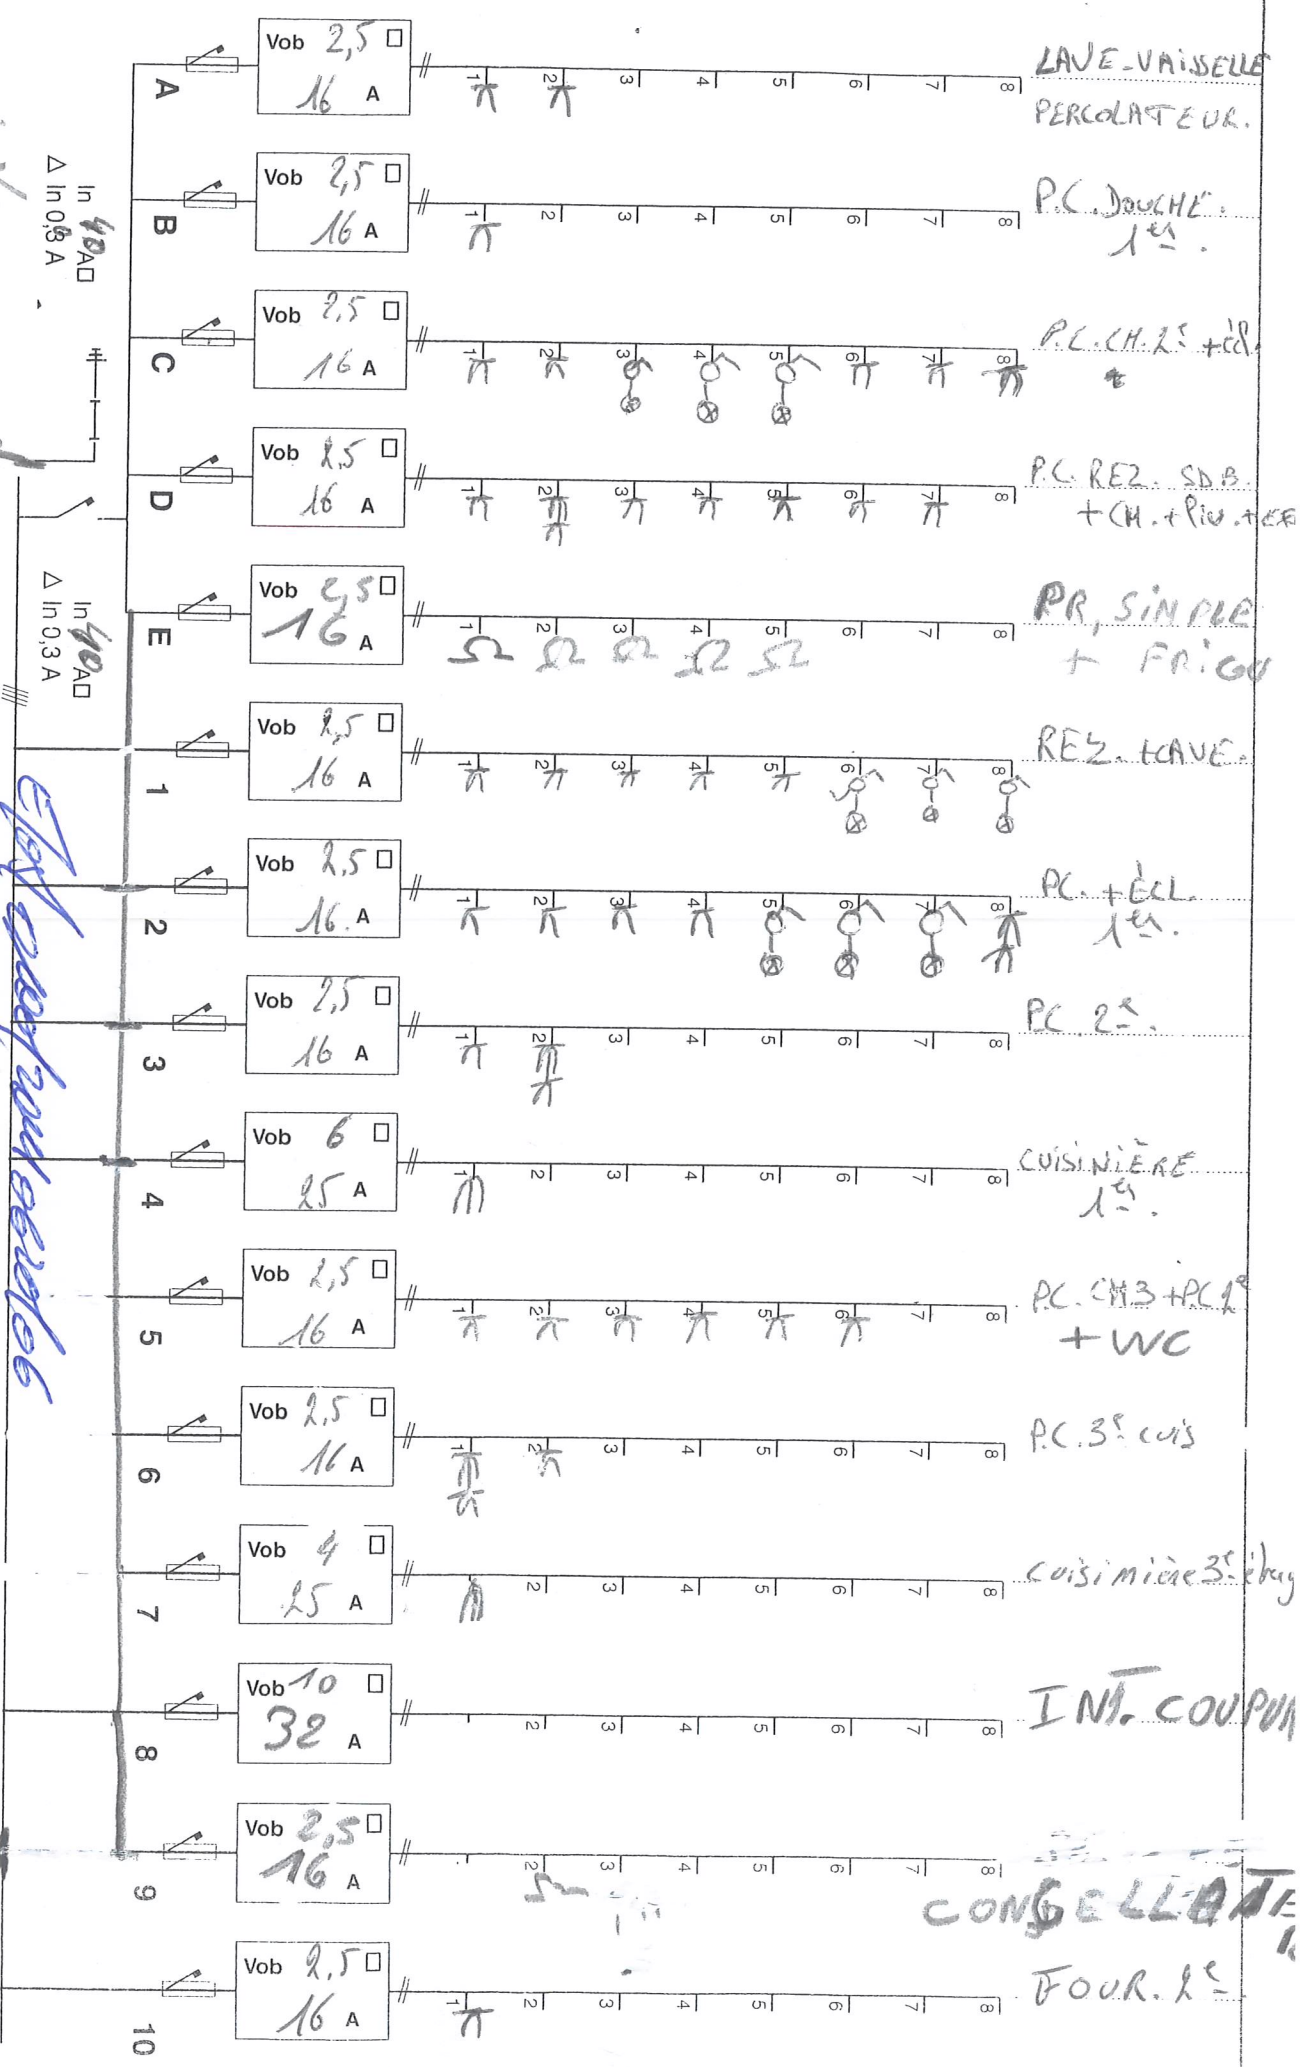 Vob 2,5
16 A
A
1 2 3 4 5 6 7 8
LAVE-VAISSELLE
PERCOLATEUR.
Vob 2,5
16 A
B
1 2 3 4 5 6 7 8
P.C. DOUCHE.
1er.
In 40 A
Δ In 0,3 A
Vob 2,5
16 A
C
1 2 3 4 5 6 7 8
P.C. CH. 2e + écl.
Vob 2,5
16 A
D
1 2 3 4 5 6 7 8
P.C. REZ. SDB.
+ CH. +
Vob 2,5
16 A
E
1 2 3 4 5 6 7 8
PR, SIMPLE
+ FRIGO
In 40 A
Δ In 0,3 A
Vob 2,5
16 A
1
1 2 3 4 5 6 7 8
REZ. + CAVE.
Vob 2,5
16. A
2
1 2 3 4 5 6 7 8
PC. + ÉCL.
1er.
Vob 2,5
16 A
3
1 2 3 4 5 6 7 8
P.C. 2e.
Vob 6
25 A
4
1 2 3 4 5 6 7 8
CUISINIÈRE
1er.
Vob 2,5
16 A
5
1 2 3 4 5 6 7 8
P.C. CH3 + PC 2e
+ WC
Vob 2,5
16 A
6
1 2 3 4 5 6 7 8
P.C. 3e cuis
Vob 4
25 A
7
2 3 4 5 6 7 8
Cuisinière 3e
Vob 10
32 A
8
2 3 4 5 6 7 8
INT. COUPUR
Vob 2,5
16 A
9
2 3 4 5 6 7 8
CONGELLATE
Vob 2,5
16 A
10
1 2 3 4 5 6 7 8
FOUR. 2e